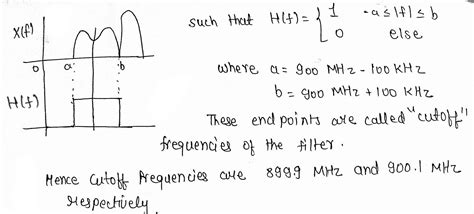 X(f)
such that H(f) = { 1 -a ≤ |f| ≤ b
0 else
0 a b
where a = 900 MHz - 100 KHz
b = 900 MHz + 100 KHz
H(f)
These end points are called "cutoff"
frequencies of the filter.
Hence cutoff frequencies are 899.9 MHz and 900.1 MHz
respectively